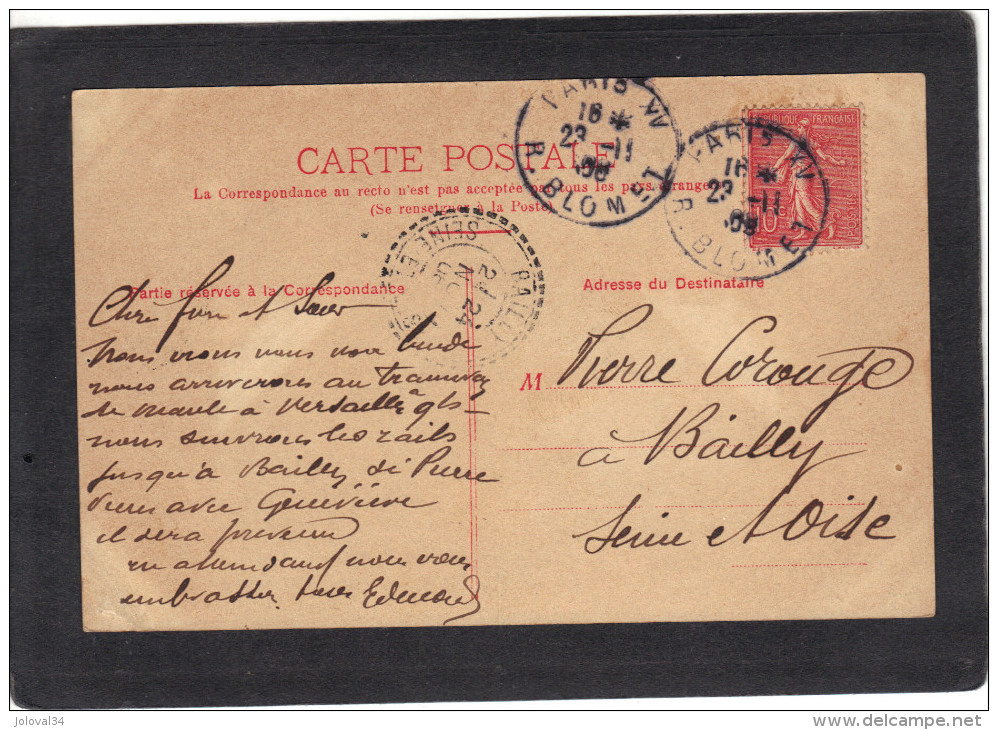 PARIS XV
16 *
23 -11
R. BLOMET
RÉPUBLIQUE FRANÇAISE
POSTES
10c
PARIS XV
16 *
23 -11
09
R. BLOMET
CARTE POSTALE
La Correspondance au recto n'est pas acceptée par tous les pays étrangers
(Se renseigner à la Poste)
BAILLY
SEINE ET
24
Partie réservée à la Correspondance
Adresse du Destinataire
Chère frère et Sœur
nous arriverons au tramway
de Maule à Versailles à 9h
nous suivrons les rails
jusqu'à Bailly si Pierre
viens avec Geneviève
il sera prévenu
en attendant nous vous
embrassons tous Edmond
M Pierre Corouge
à Bailly
Seine et Oise
joloval34
www.delcampe.net